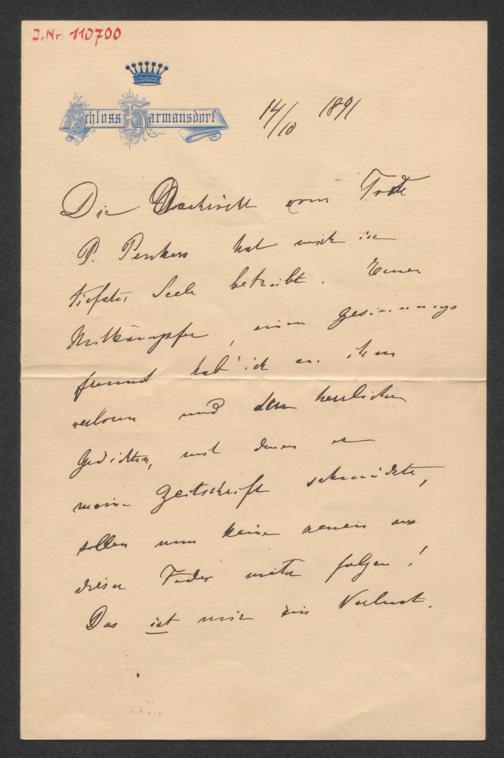 J.Nr. 110700
Schloss Harmansdorf
14/10 1891
Die Nachricht vom Tode
P. hat mich in
tiefster Seele betrübt. Einen
Mitkämpfer, einen Gesinnungs
freund hab' ich an ihm
verloren und den herrlichen
Gedichten, mit denen er
meine Zeitschrift schmückte,
sollen nun keine neuen aus
dieser Feder mehr folgen!
Das ist mir ein Verlust.